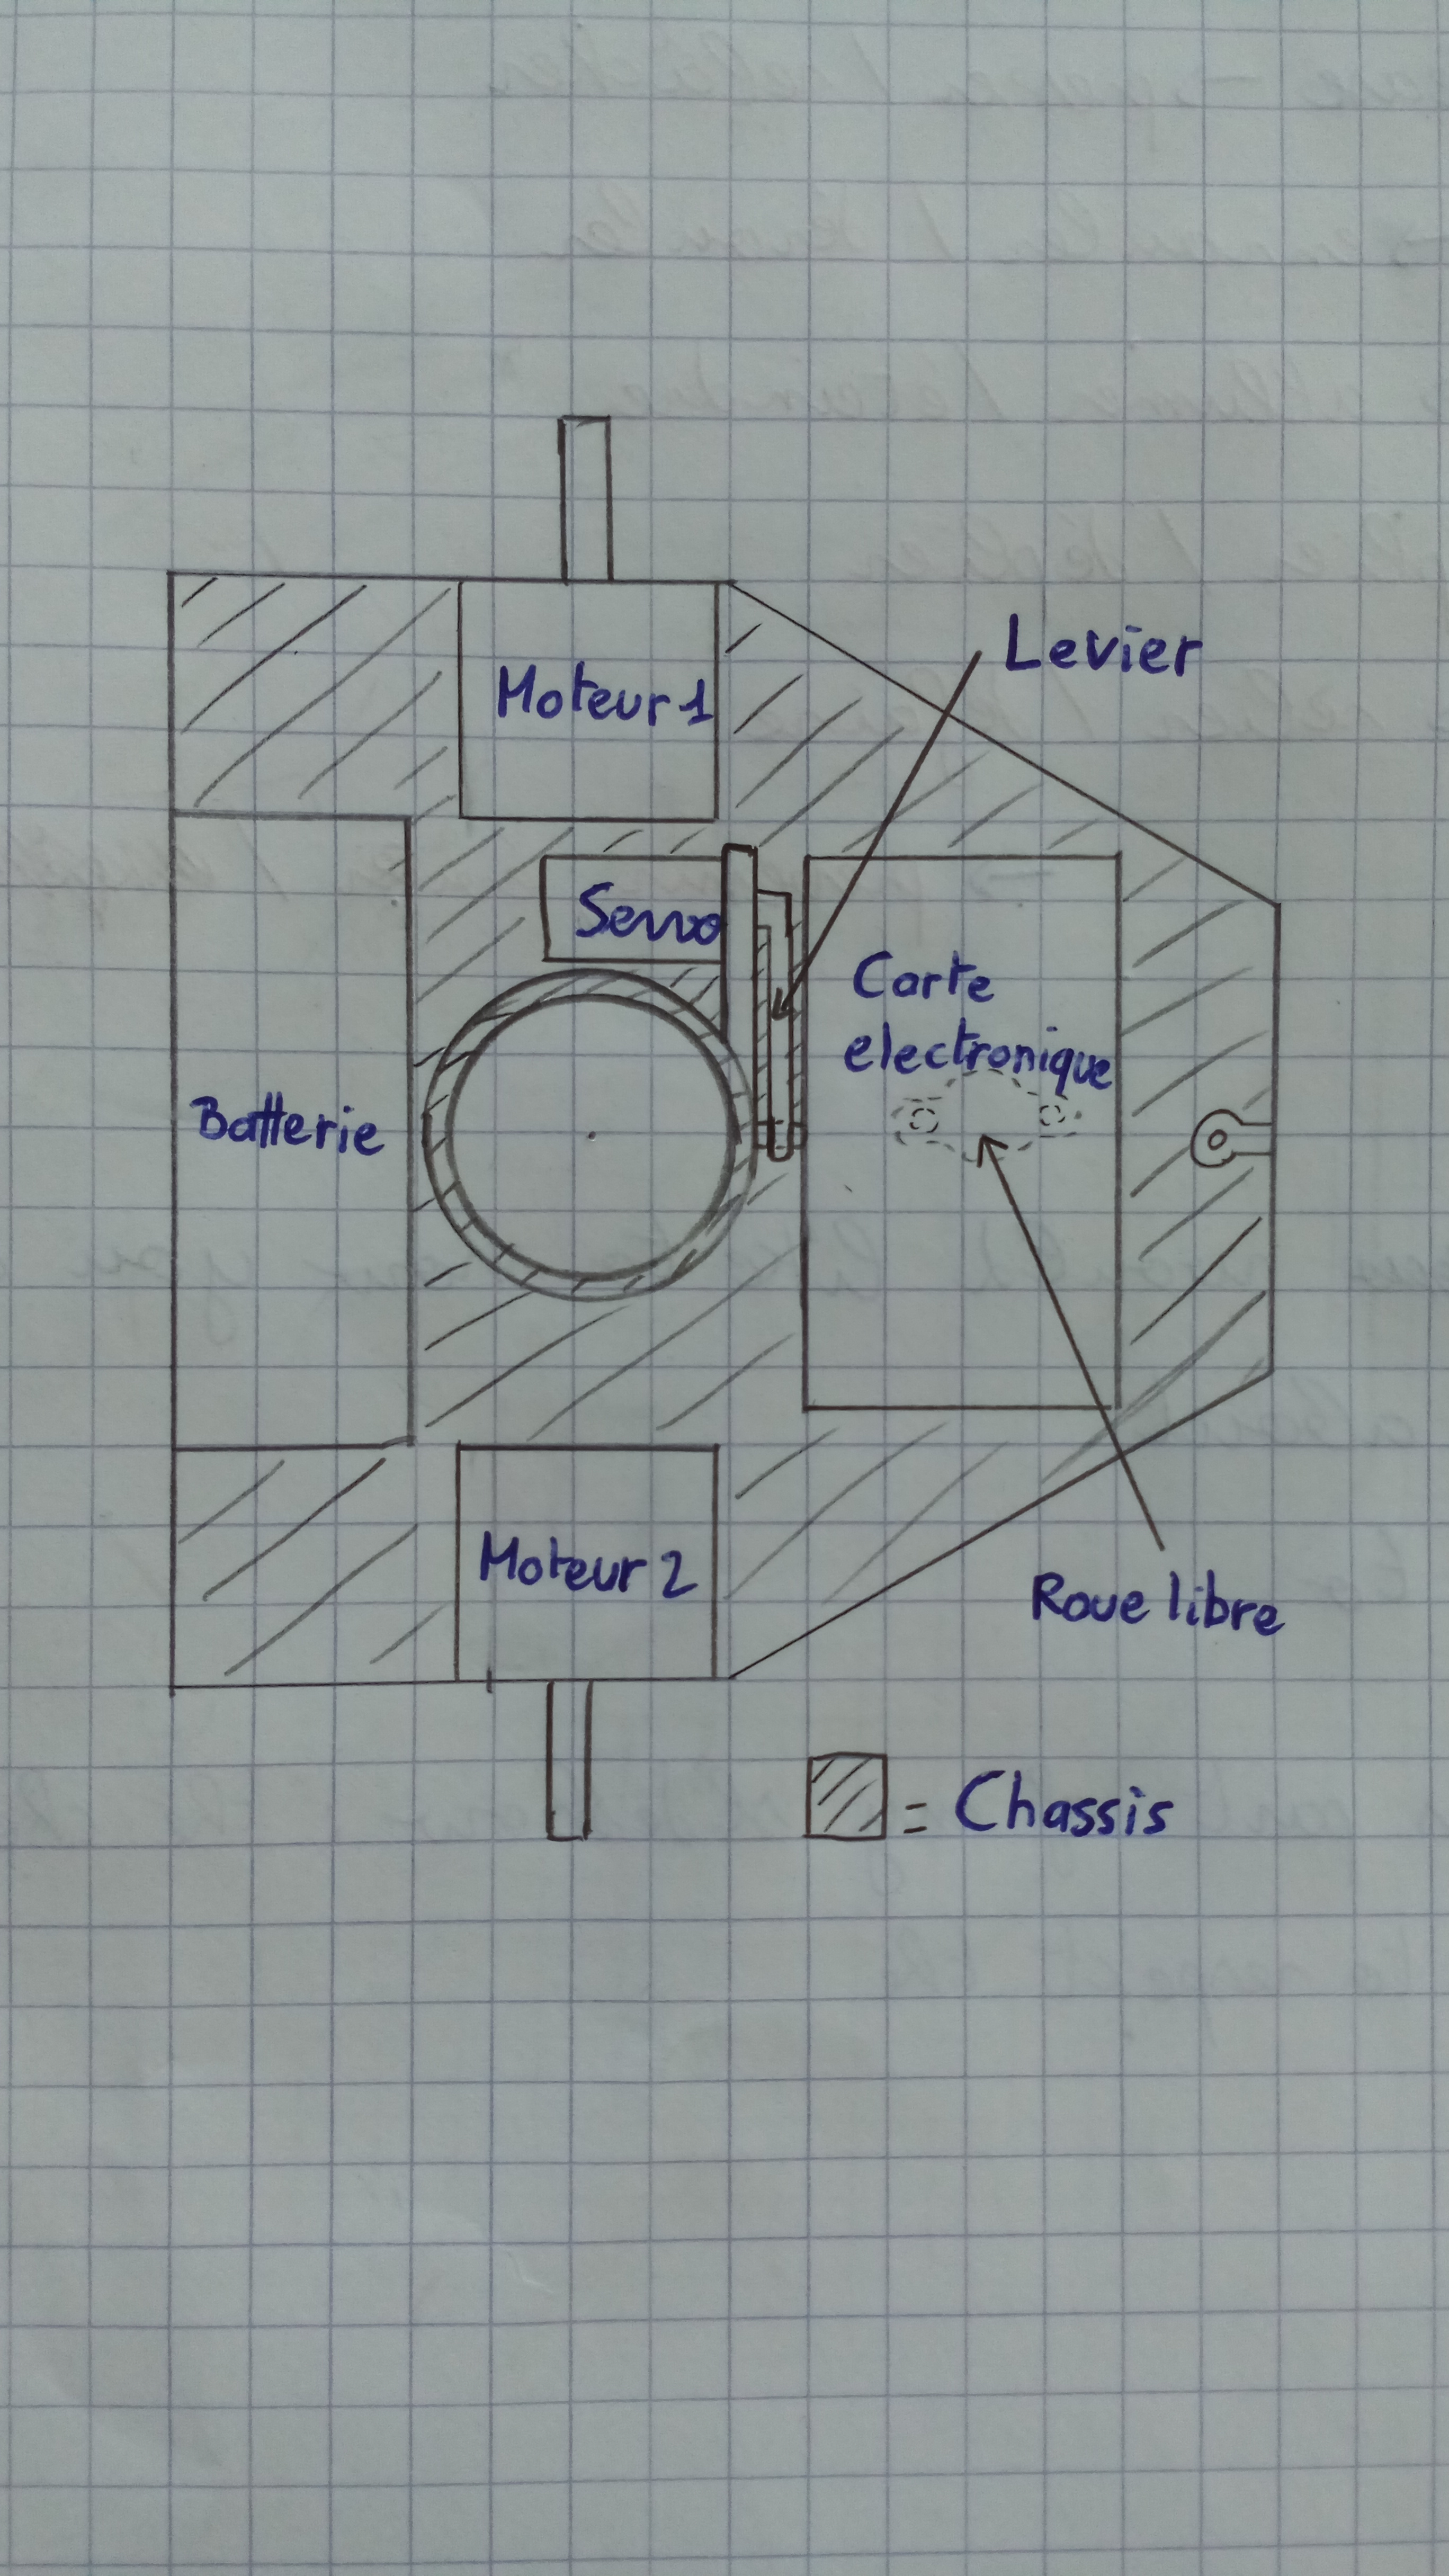 Levier
Moteur 1
Servo
Carte
electronique
Batterie
Moteur 2
Roue libre
= Chassis